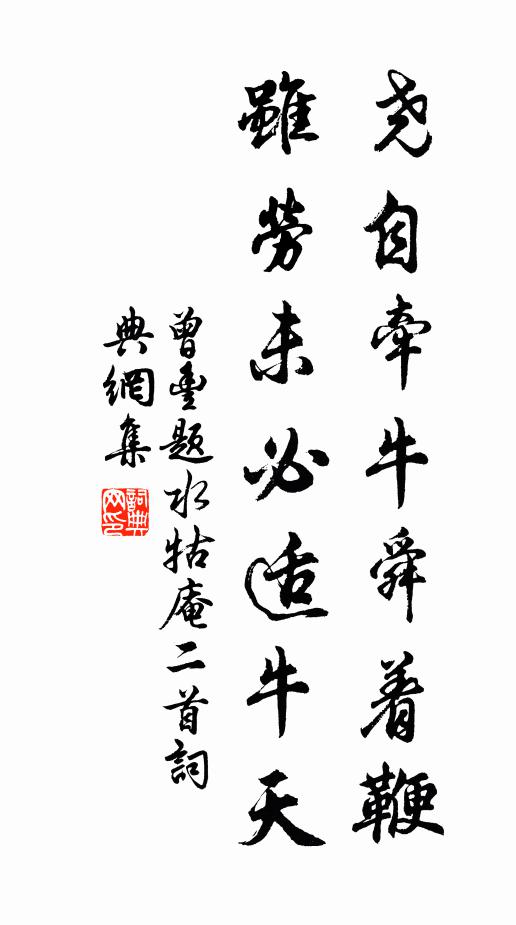 尧自牽牛舜着鞭
雖勞未必适牛天
曾豊题水牯庵二首詞
典網集
詞典网印